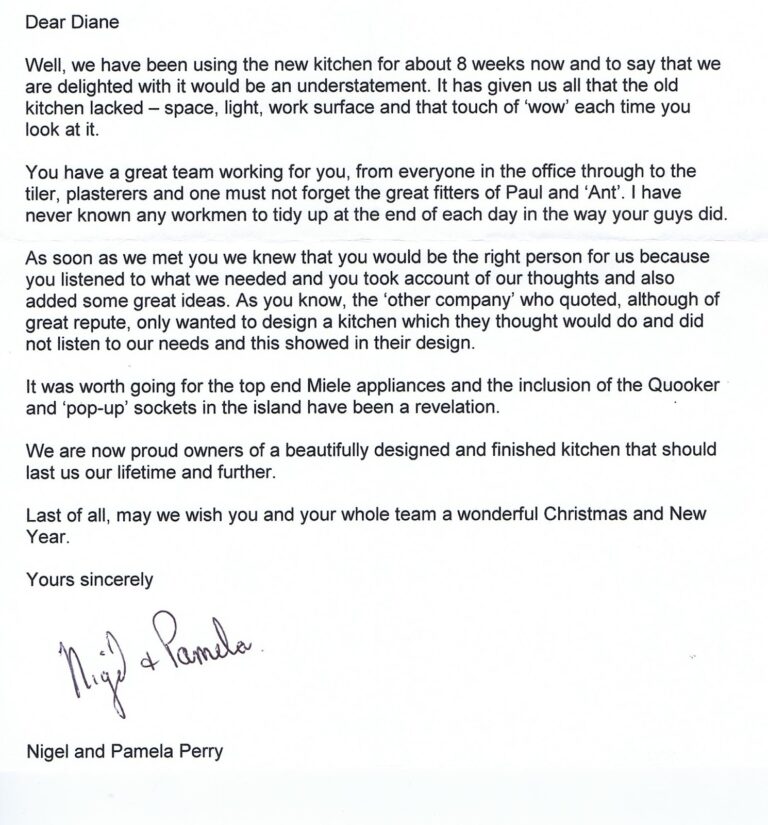 Dear Diane
Well, we have been using the new kitchen for about 8 weeks now and to say that we
are delighted with it would be an understatement. It has given us all that the old
kitchen lacked – space, light, work surface and that touch of ‘wow’ each time you
look at it.
You have a great team working for you, from everyone in the office through to the
tiler, plasterers and one must not forget the great fitters of Paul and ‘Ant’. I have
never known any workmen to tidy up at the end of each day in the way your guys did.
As soon as we met you we knew that you would be the right person for us because
you listened to what we needed and you took account of our thoughts and also
added some great ideas. As you know, the ‘other company’ who quoted, although of
great repute, only wanted to design a kitchen which they thought would do and did
not listen to our needs and this showed in their design.
It was worth going for the top end Miele appliances and the inclusion of the Quooker
and ‘pop-up’ sockets in the island have been a revelation.
We are now proud owners of a beautifully designed and finished kitchen that should
last us our lifetime and further.
Last of all, may we wish you and your whole team a wonderful Christmas and New
Year.
Yours sincerely
Nigel + Pamela.
Nigel and Pamela Perry